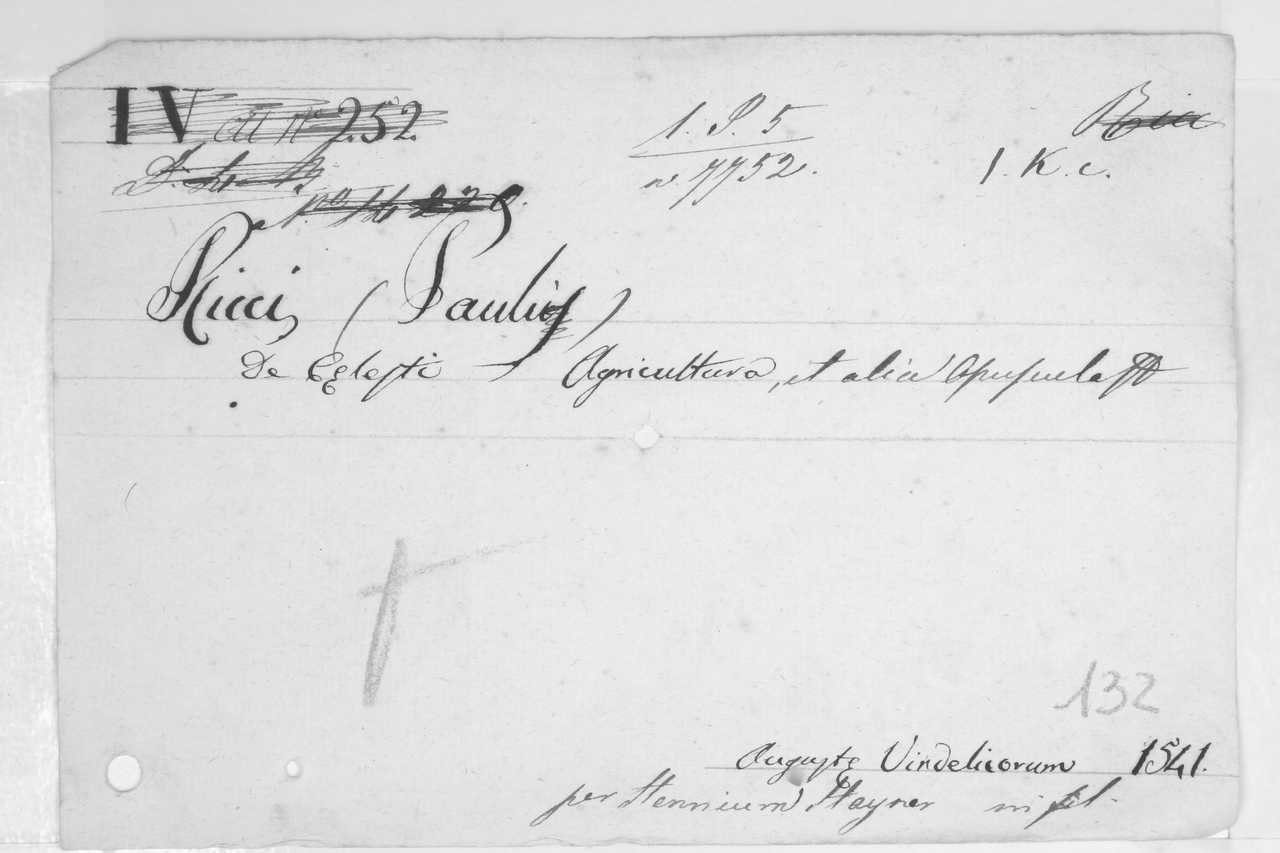 IV 252.
1. P. 5
n. 7752.
1. K. c.
Ricci, (Pauli)
De Cęlesti Agricultura, et alia Opuscula
132
Augustę Vindelicorum 1541.
per Hennicum Stayner in fol.